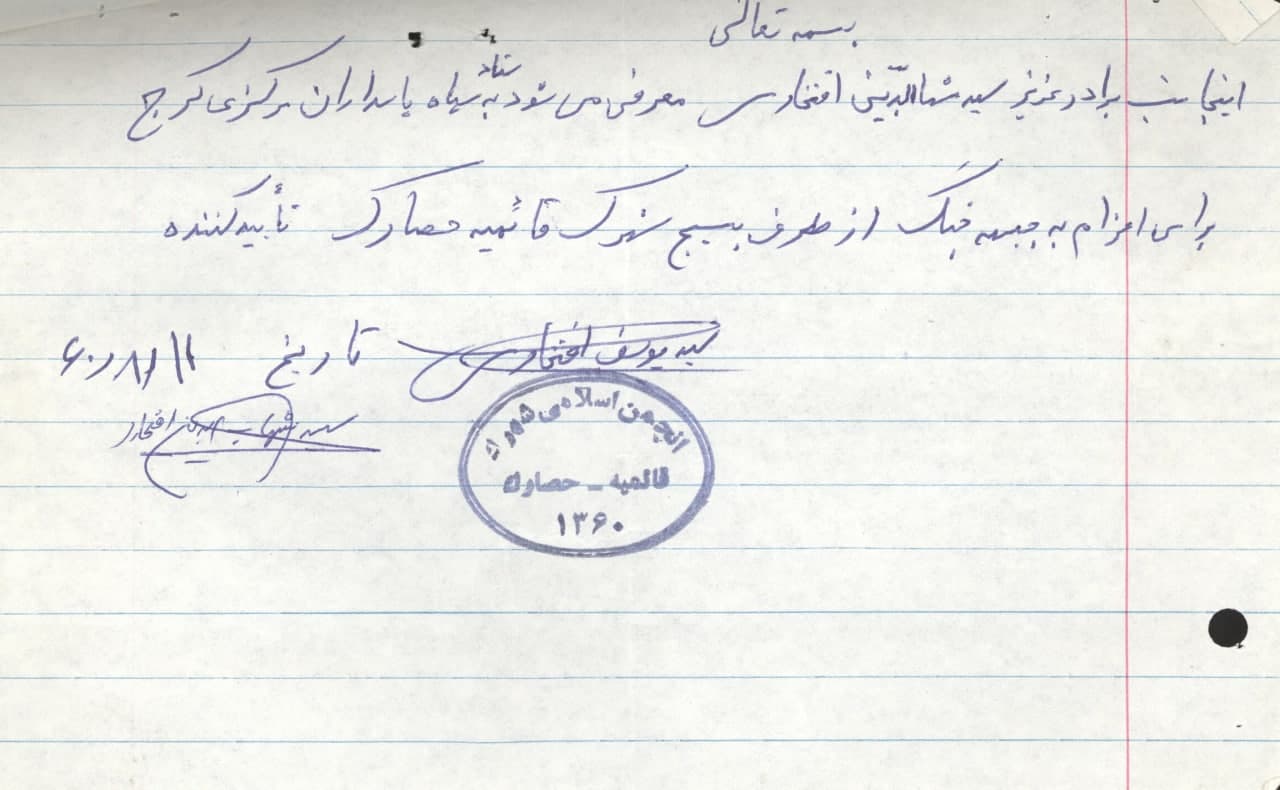 بسمه تعالی
اینجانب برادر عزیز سید شهاب‌الدّین افتخاری معرفی می شود به ستاد سپاه پاسداران مرکزی کرج
برای اعزام به جبهه جنگ از طرف بسیج شهرک قائمیه حصارک تأیید کننده
سید یوسف افتخاری تاریخ ۶۰/۸/۱۱
سید شهاب الدین افتخاری
انجمن اسلامی شهرک
قائمیه - حصارک
۱۳۶۰